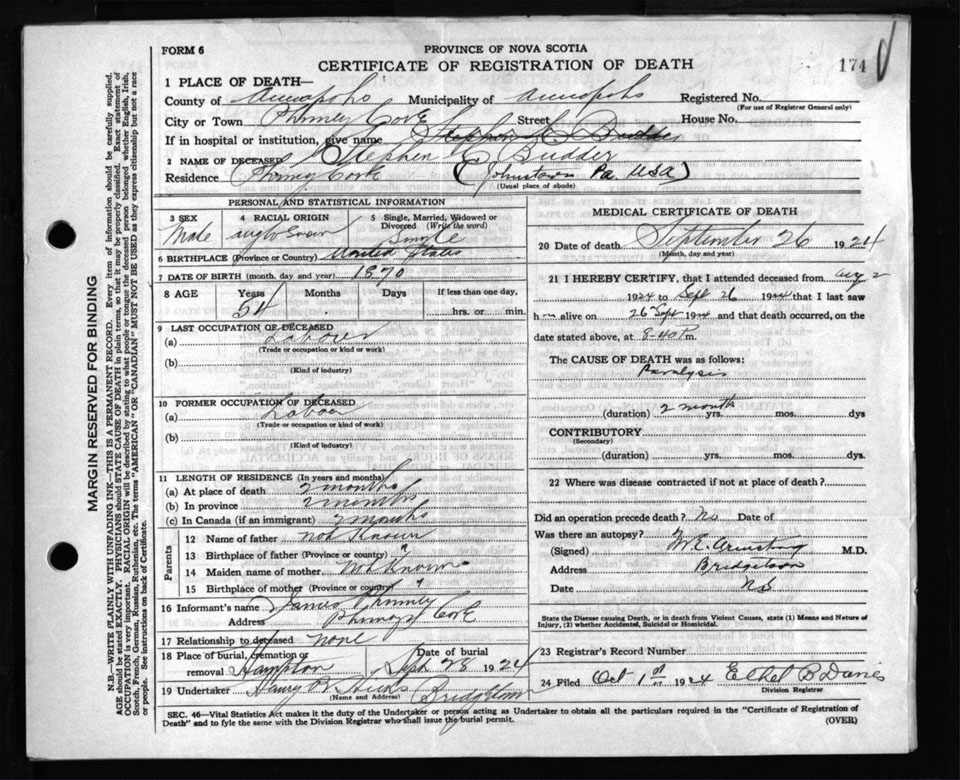 FORM 6
PROVINCE OF NOVA SCOTIA
CERTIFICATE OF REGISTRATION OF DEATH
174
1 PLACE OF DEATH—
County of Annapolis Municipality of Annapolis Registered No.
(For use of Registrar General only)
City or Town Cove Street House No.
If in hospital or institution, give name Stephen Budder
2 NAME OF DECEASED Stephen Budder
Residence Cove (Johnstown Pa. USA)
(Usual place of abode)
PERSONAL AND STATISTICAL INFORMATION
3 SEX Male
4 RACIAL ORIGIN anglo Saxon
5 Single, Married, Widowed or Divorced (Write the word) Single
6 BIRTHPLACE (Province or Country) United States
7 DATE OF BIRTH (month, day and year) 1870
8 AGE Years Months Days If less than one day,
54 hrs. or min.
9 LAST OCCUPATION OF DECEASED
(a) Laborer
(Trade or occupation or kind or work)
(b)
(Kind of industry)
10 FORMER OCCUPATION OF DECEASED
(a) Labor
(Trade or occupation or kind of work)
(b)
(Kind of industry)
11 LENGTH OF RESIDENCE (In years and months)
(a) At place of death 2 months
(b) In province 2 months
(c) In Canada (if an immigrant) 2 months
Parents
12 Name of father Not Known
13 Birthplace of father (Province or country) "
14 Maiden name of mother Not Known
15 Birthplace of mother (Province or country) "
16 Informant's name James
Address Cove
17 Relationship to deceased none
18 Place of burial, cremation or removal Hampton Date of burial Sept 28 1924
19 Undertaker Harry Hicks Bridgetown
(Name and Address)
MEDICAL CERTIFICATE OF DEATH
20 Date of death September 26 1924
(Month, day and year)
21 I HEREBY CERTIFY, that I attended deceased from Aug 2
1924 to Sept 26 1924 that I last saw
him alive on 26 Sept 1924 and that death occurred, on the
date stated above, at 8-40 P m.
The CAUSE OF DEATH was as follows:
Paralysis
(duration) 2 month yrs. mos. dys
CONTRIBUTORY
(Secondary)
(duration) yrs. mos. dys.
22 Where was disease contracted if not at place of death?
Did an operation precede death? No Date of
Was there an autopsy?
(Signed) Armstrong M.D.
Address Bridgetown
Date N.S.
State the Disease causing Death, or in death from Violent Causes, state (1) Means and Nature of Injury, (2) whether Accidental, Suicidal or Homicidal.
23 Registrar's Record Number
24 Filed Oct 1st 1924 Ethel B Davies
Division Registrar
SEC. 46—Vital Statistics Act makes it the duty of the Undertaker or person acting as Undertaker to obtain all the particulars required in the "Certificate of Registration of
Death" and to fyle the same with the Division Registrar who shall issue the burial permit.
(OVER)
MARGIN RESERVED FOR BINDING
N.B.—WRITE PLAINLY WITH UNFADING INK—THIS IS A PERMANENT RECORD. Every item of information should be carefully supplied.
AGE should be stated EXACTLY. PHYSICIANS should STATE CAUSE OF DEATH in plain terms, so that it may be properly classified. Exact statement of
OCCUPATION is very important. RACIAL ORIGIN will be described by stating to what people or tongue the deceased person belonged whether English, Irish,
Scotch, French, German, Russian, Ruthenian, etc. The terms "AMERICAN" OR "CANADIAN" MUST NOT BE USED as they express citizenship but not a race
or people. See instructions on back of Certificate.